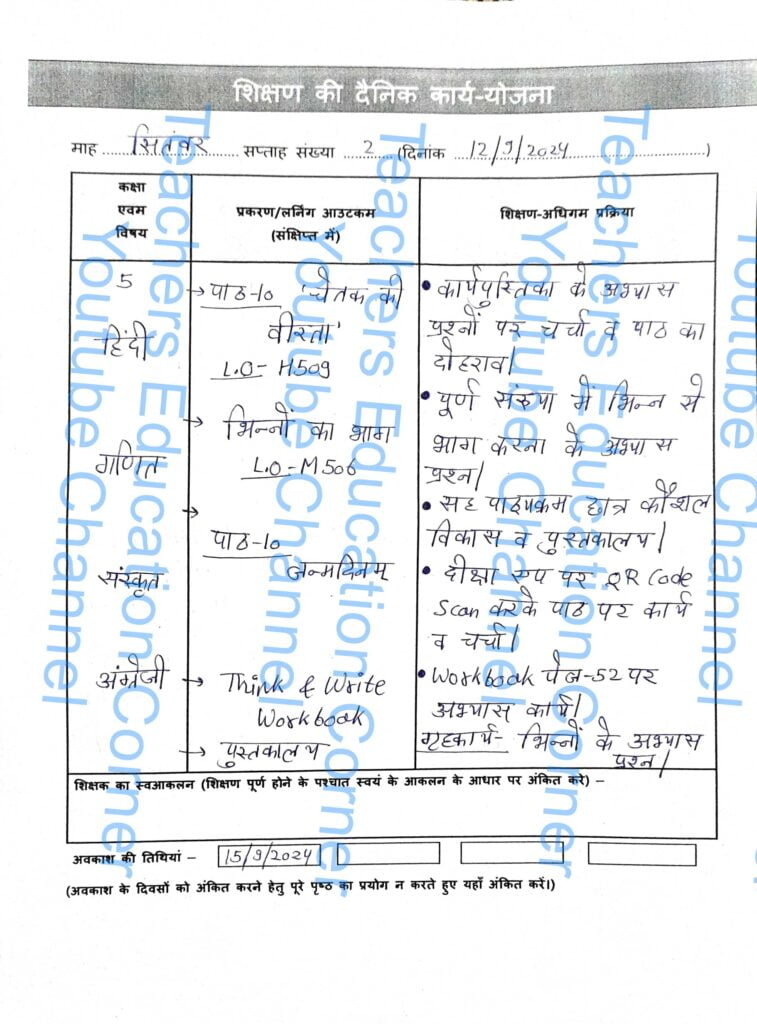 शिक्षण की दैनिक कार्य-योजना
माह सितंबर सप्ताह संख्या 2 (दिनांक 12/9/2024)
कक्षा
एवम
विषय
प्रकरण/लर्निंग आउटकम
(संक्षिप्त में)
शिक्षण-अधिगम प्रक्रिया
5
हिंदी
→ पाठ-10 'चेतक की
वीरता'
L.O- H509
• कार्यपुस्तिका के अभ्यास
प्रश्नों पर चर्चा व पाठ का
दोहराव।
गणित
→ भिन्नों का भाग
L.O-M506
• पूर्ण संख्या में भिन्न से
भाग करना के अभ्यास
प्रश्न।
→
• सह पाठ्यक्रम छात्र कौशल
विकास व पुस्तकालय।
संस्कृत
पाठ-10
जन्मदिनम्
• दीक्षा एप पर QR Code
Scan करके पाठ पर कार्य
व चर्चा।
अंग्रेजी
→ Think & Write
Workbook
• Workbook पेज-52 पर
अभ्यास कार्य।
→ पुस्तकालय
गृहकार्य- भिन्नों के अभ्यास
प्रश्न।
शिक्षक का स्वआकलन (शिक्षण पूर्ण होने के पश्चात स्वयं के आकलन के आधार पर अंकित करे) –
अवकाश की तिथियां – 15/9/2024
(अवकाश के दिवसों को अंकित करने हेतु पूरे पृष्ठ का प्रयोग न करते हुए यहाँ अंकित करें।)
Teachers Education Corner
Youtube Channel
Teachers Education Corner
Youtube Channel
Teachers Education Corner
Youtube Channel
Youtube Channel